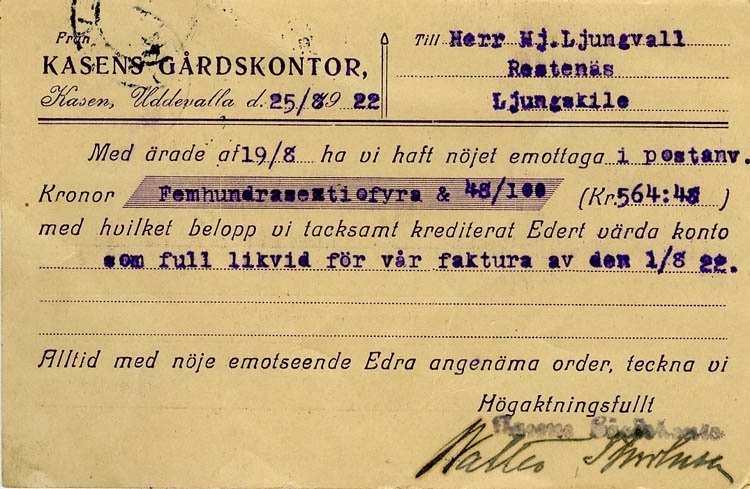 Från
KASENS GÅRDSKONTOR,
Kasen, Uddevalla d. 25/8 1922
Till Herr Hj. Ljungvall
Restenäs
Ljungskile
Med ärade af 19/8 ha vi haft nöjet emottaga i postanv.
Kronor Femhundrasextiofyra & 48/100 (Kr. 564:48 )
med hvilket belopp vi tacksamt krediterat Edert värda konto
som full likvid för vår faktura av den 1/8 22.
Alltid med nöje emotseende Edra angenäma order, teckna vi
Högaktningsfullt
Kasens Gårdskontor